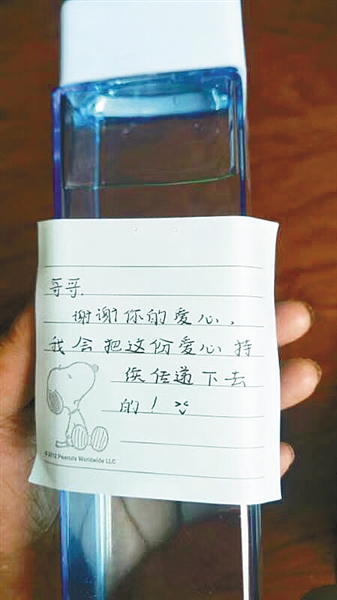 哥哥.
谢谢你的爱心，
我会把这份爱心持
续传递下去
的！
© 2012 Peanuts Worldwide LLC